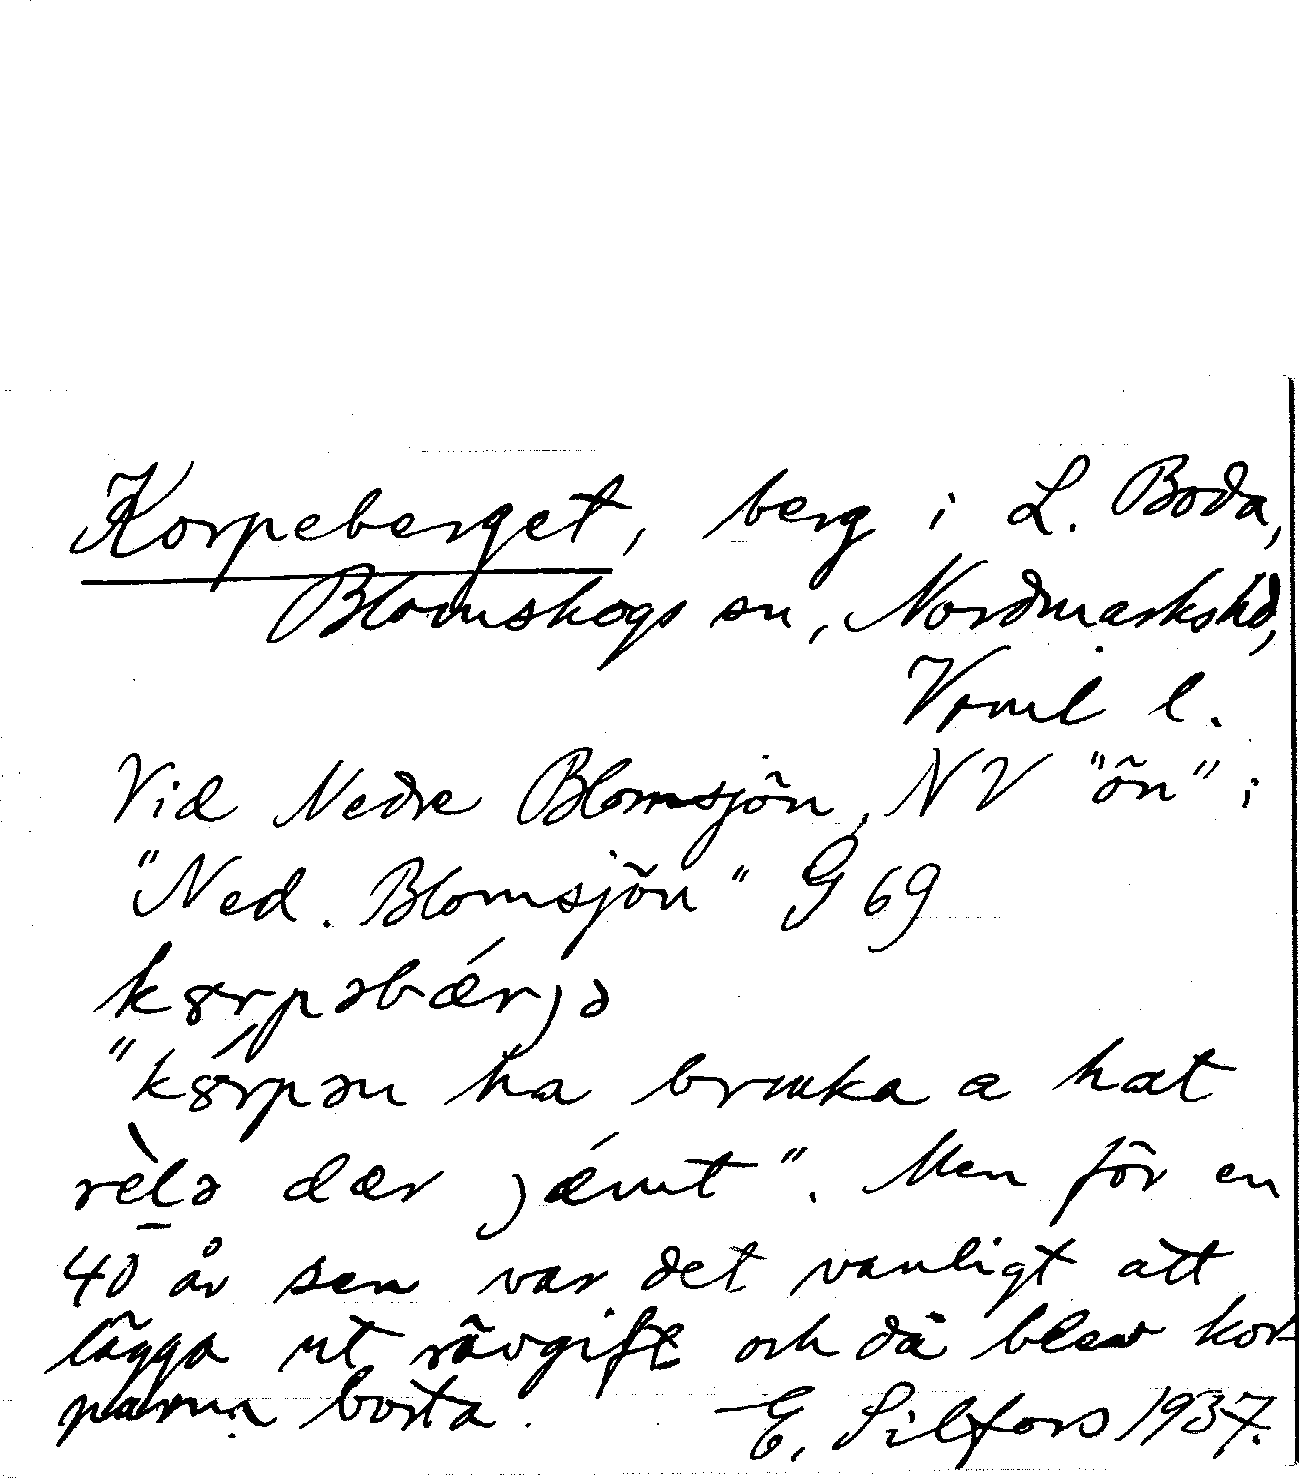 Korpeberget, berg i L. Boda,
Blomskogs sn, Nordmarkshd,
Vrml l.
Vid Nedre Blomsjön, NV "ön" i
"Ned. Blomsjön" G 69
kɞrpəbǽrjə
"kɞ́rpən ha bruka a hat
rèlə dær jǽmt". Men för en
40 år sen var det vanligt att
lägga ut rävgift och då blev kor-
parna borta. E. Silfors 1937.